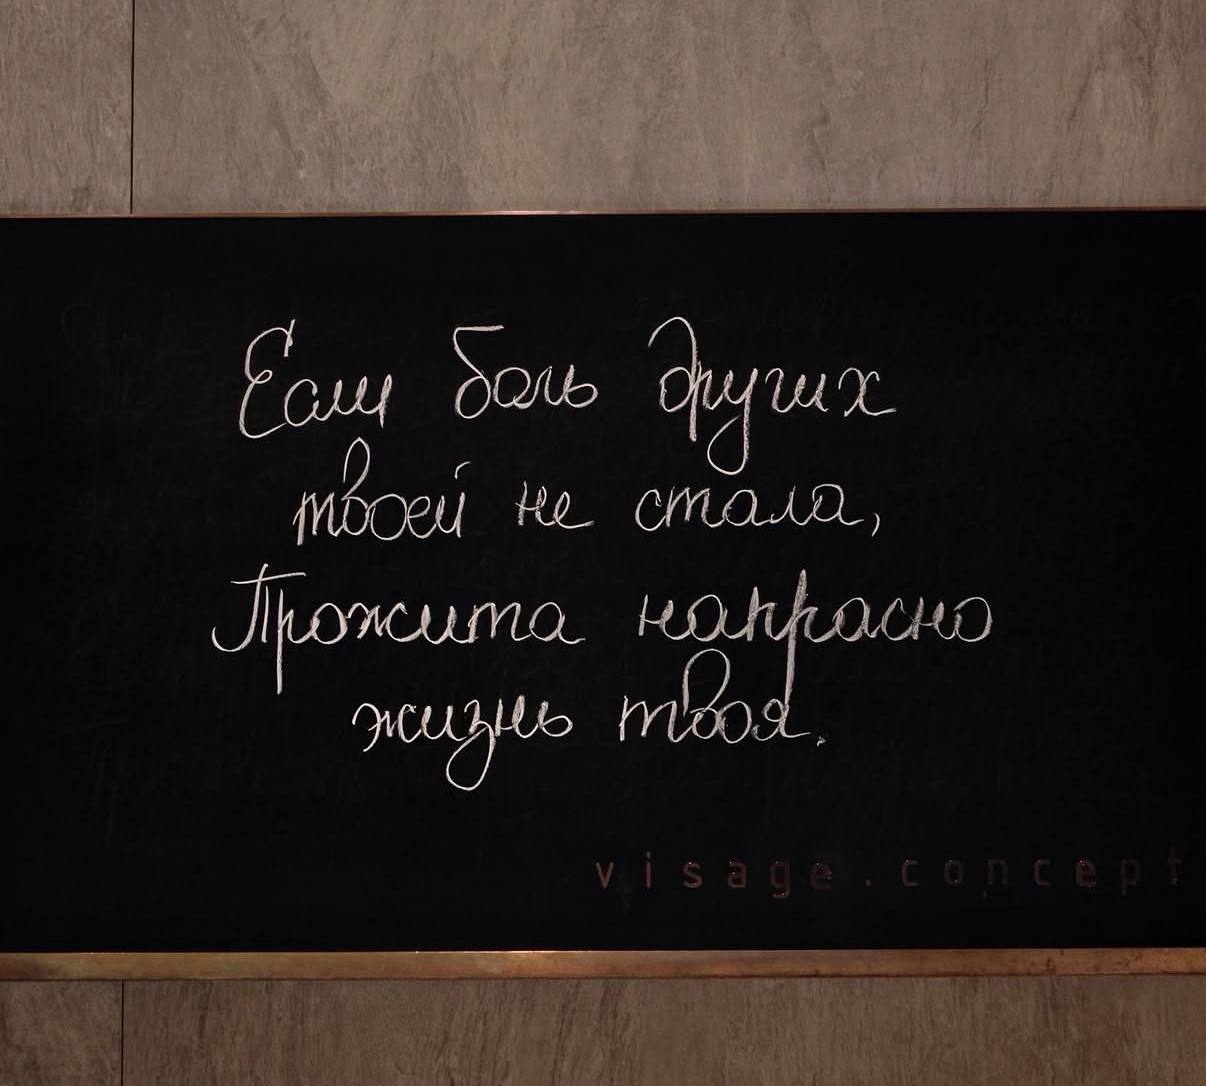 Если боль других
твоей не стала,
Прожита напрасно
жизнь твоя.
visage.concept